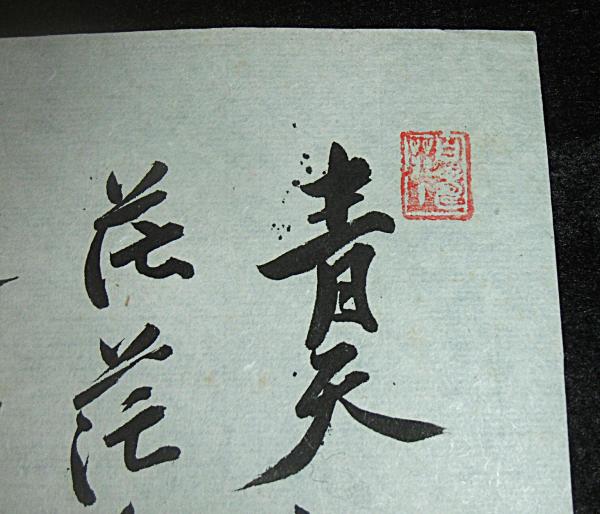 青天
茫茫